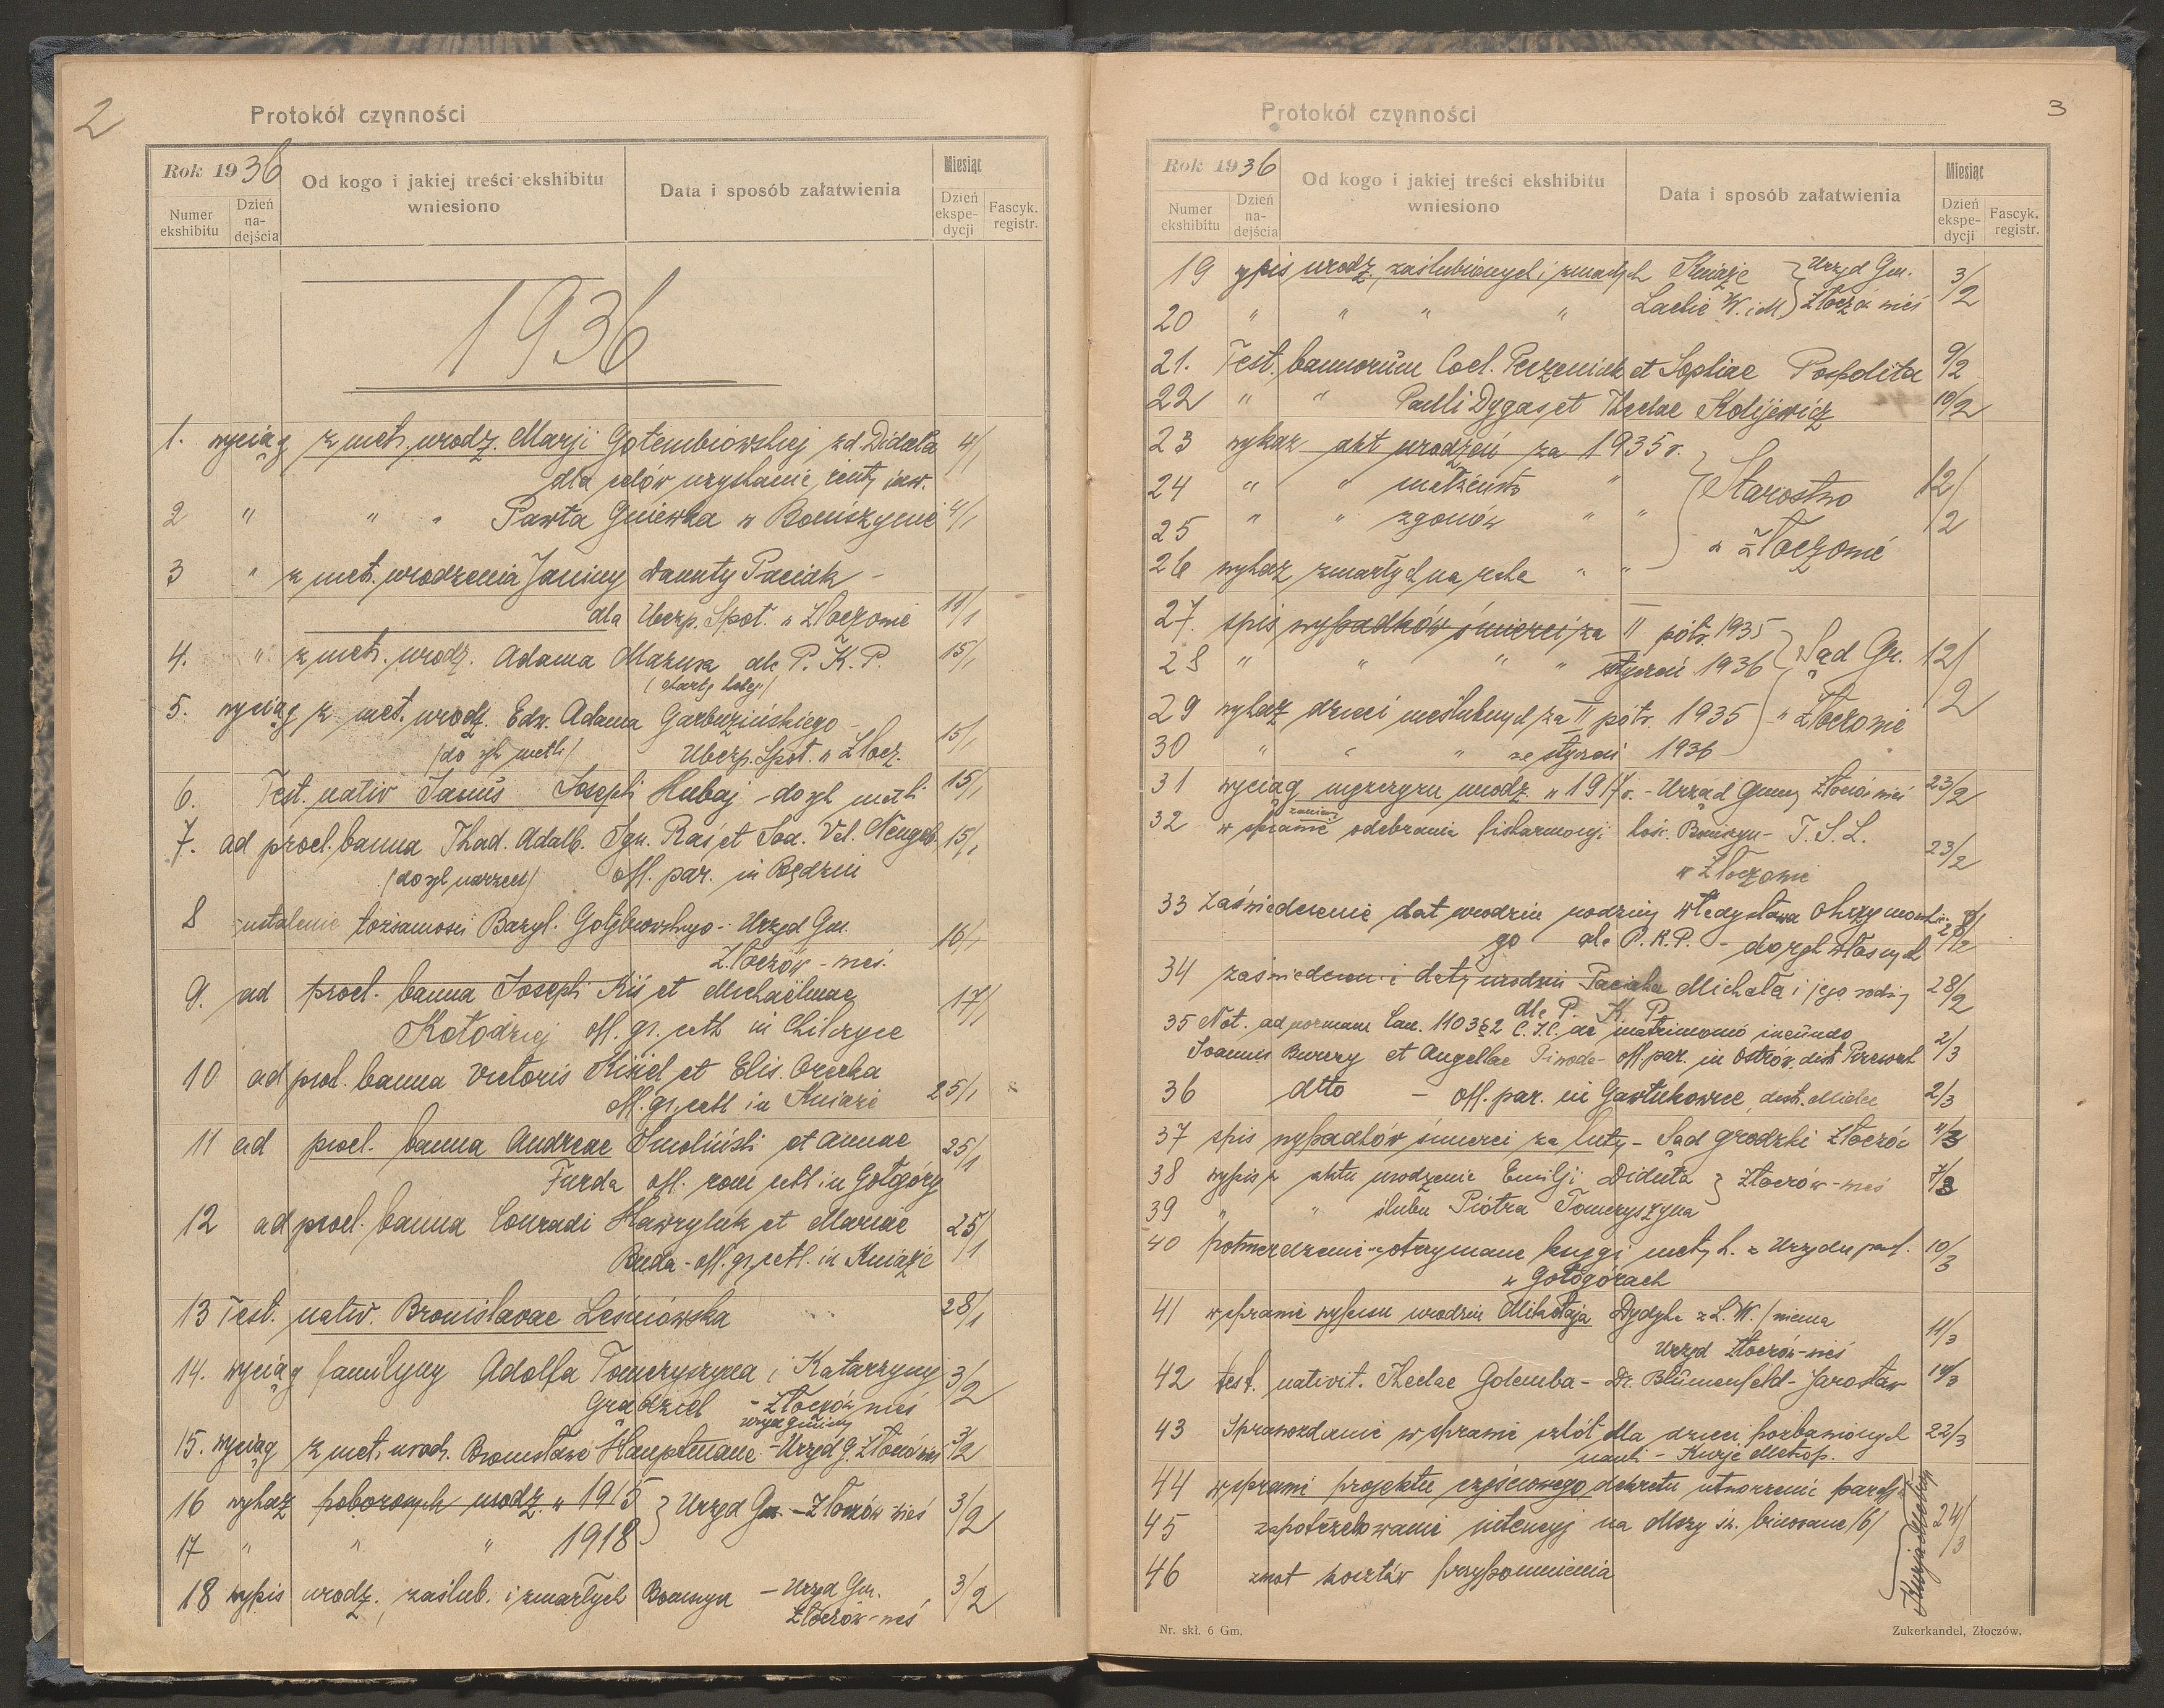 2
Protokół czynności
Rok 1936
Numer ekshibitu
Dzień na-dejścia
Od kogo i jakiej treści ekshibitu wniesiono
Data i sposób załatwienia
Miesiąc
Dzień ekspe-dycji
Fascyk. registr.
1936
1. wyciąg z metr. urodz. Marji Gołembiowskiej zd. Diduła 4/1
dla celów uzyskanie renty inw.
2 " " " Pawła Gniewka w Boniszynie 4/1
3 " z metr. urodzenia Janiny Danuty Paciak -
dla Ubezp. Społ. w Złoczowie 11/1
4. " z metr. urodz. Adama Mazura dla P. K. P. 15/1
5. wyciąg z met. urodz. Edw. Adama Garbuzińskiego -
Ubezp. Społ. w Złocz. 15/1
6. Test. nativ Josephi Hubaj - do 15/1
7. ad procl. banna Thad. Adalb. Ign. Raś et Vel. 15/1
off. par. in Będzin
8 ustalenie tożsamości Bazyl. Gołębiowskiego - Urząd Gm.
Złoczów - wieś. 16/1
9. ad procl. banna Josephi Kiś et Michaëlinae 17/1
Kołodziej off. gr. cath in Chilczyce
10 ad procl. banna Victoris Kisiel et Elis. Orecka
off. gr. cath in Kniaże 25/1
11 ad procl. banna Andreae Smoliński et Annae 25/1
Furda off. rom cath in Gołogóry
12 ad procl. banna Conradi Hawryluk et Mariae 25/1
Buda - off. gr. cath. in Kniaże
13 Test. nativ. Bronislavae Leśniowska 28/1
14. wyciąg familijny Adolfa Tomczyszyna i Katarzyny 3/2
Grabziel - Złoczów wieś
urząd gminy
15. wyciąg z metr. urodz. Bronisława Hauptmana - Urząd g. Złoczów wieś 3/2
16 wykaz poborowych urodz. w 1915 } Urząd Gm. - Złoczów wieś 3/2
17 " " " 1918
18 wypis urodz., zaślub. i zmarłych Boniszyn - Urząd Gm. 3/2
Złoczów - wieś
3
Protokół czynności
Rok 1936
Numer ekshibitu
Dzień na-dejścia
Od kogo i jakiej treści ekshibitu wniesiono
Data i sposób załatwienia
Miesiąc
Dzień ekspe-dycji
Fascyk. registr.
19 wypis urodz, zaślubionych i zmarłych Kniaże } Urząd Gm. 3/2
20 " " " " Lackie W. i M } Złoczów wieś
21. Test. bannorum Coel. Perzeniak et Sophiae Pospolita 9/2
22 " " Pauli Dygas et Theclae Kolijewicz 10/2
23 wykaz akt urodzeń za 1935 r.
24 " " małżeństw " } Starostwo 12/2
25 " " zgonów " "
w Złoczowie
26 wykaz zmarłych na raka " "
27. spis wypadków śmierci za II półr. 1935
28 " " " " styczeń 1936 } Sąd Gr. 12/2
29 wykaz dzieci nieślubnych za II półr. 1935 w Złoczowie
30 " " " za styczeń 1936
31 wyciąg mężczyzn urodz. w 1917 r. - Urząd Gminy Złoczów wieś 23/2
32 w sprawie zamiany odebrania fisharmonji kośc. Boniszyn - T. S. L. 23/2
w Złoczowie
33 Zaświadczenie dat urodzin rodziny Władysława
go dla P. K. P. - do rąk własnych
34 zaświadczenie daty urodzin Paciaka Michała i jego rodziny 28/2
dla P. K. P.
35 Not. ad normam Can. 1103 § 2 C. I. C. de matrimonio ineundo 2/3
Joannis Burery et Angellae - off. par. in Ostrów. distr. Przeworsk
36 dtto - off. par. in Gawłuszowice, distr. Mielec 2/3
37 spis wypadków śmierci za luty - Sąd grodzki Złoczów 4/3
38 wypis z aktu urodzenia Emilji Diduła } Złoczów - wieś 7/3
39 " " ślubu Piotra Tomczyszyna
40 potwierdzenie otrzymane księgi metryk. z Urzędu par. 10/3
w Gołogórach
41 w sprawie wypisu urodzin Mikołaja Dydyka z L. W. / niema
Urząd Złoczów - wieś 11/3
42 test. nativit. Theclae Golemba - Dr. Blümenfeld - Jarosław 14/3
43 Sprawozdanie w sprawie szkół dla dzieci pozbawionych 22/3
nauki - Kurje Metrop.
44 w sprawie projektu częściowego dekretu utworzenie parafji
45 zapotrzebowanie intencyj na Mszy św. binowane /6/ 24/3
46 zwrot kosztów przypomnienia
Kurja Metrop.
Nr. skł. 6 Gm.
Zukerkandel, Złoczów.